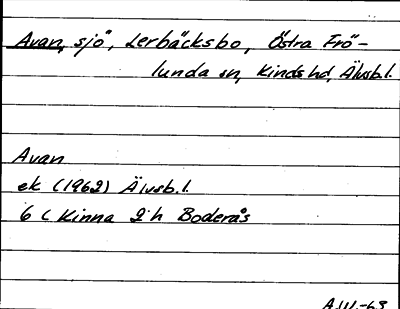 Avan, sjö, Lerbäcksbo, Östra Frö-
lunda sn, Kinds hd, Älvsb.l.
Avan
ek (1962) Älvsb.l.
6 C Kinna 2 h Boderås
A.W.-63